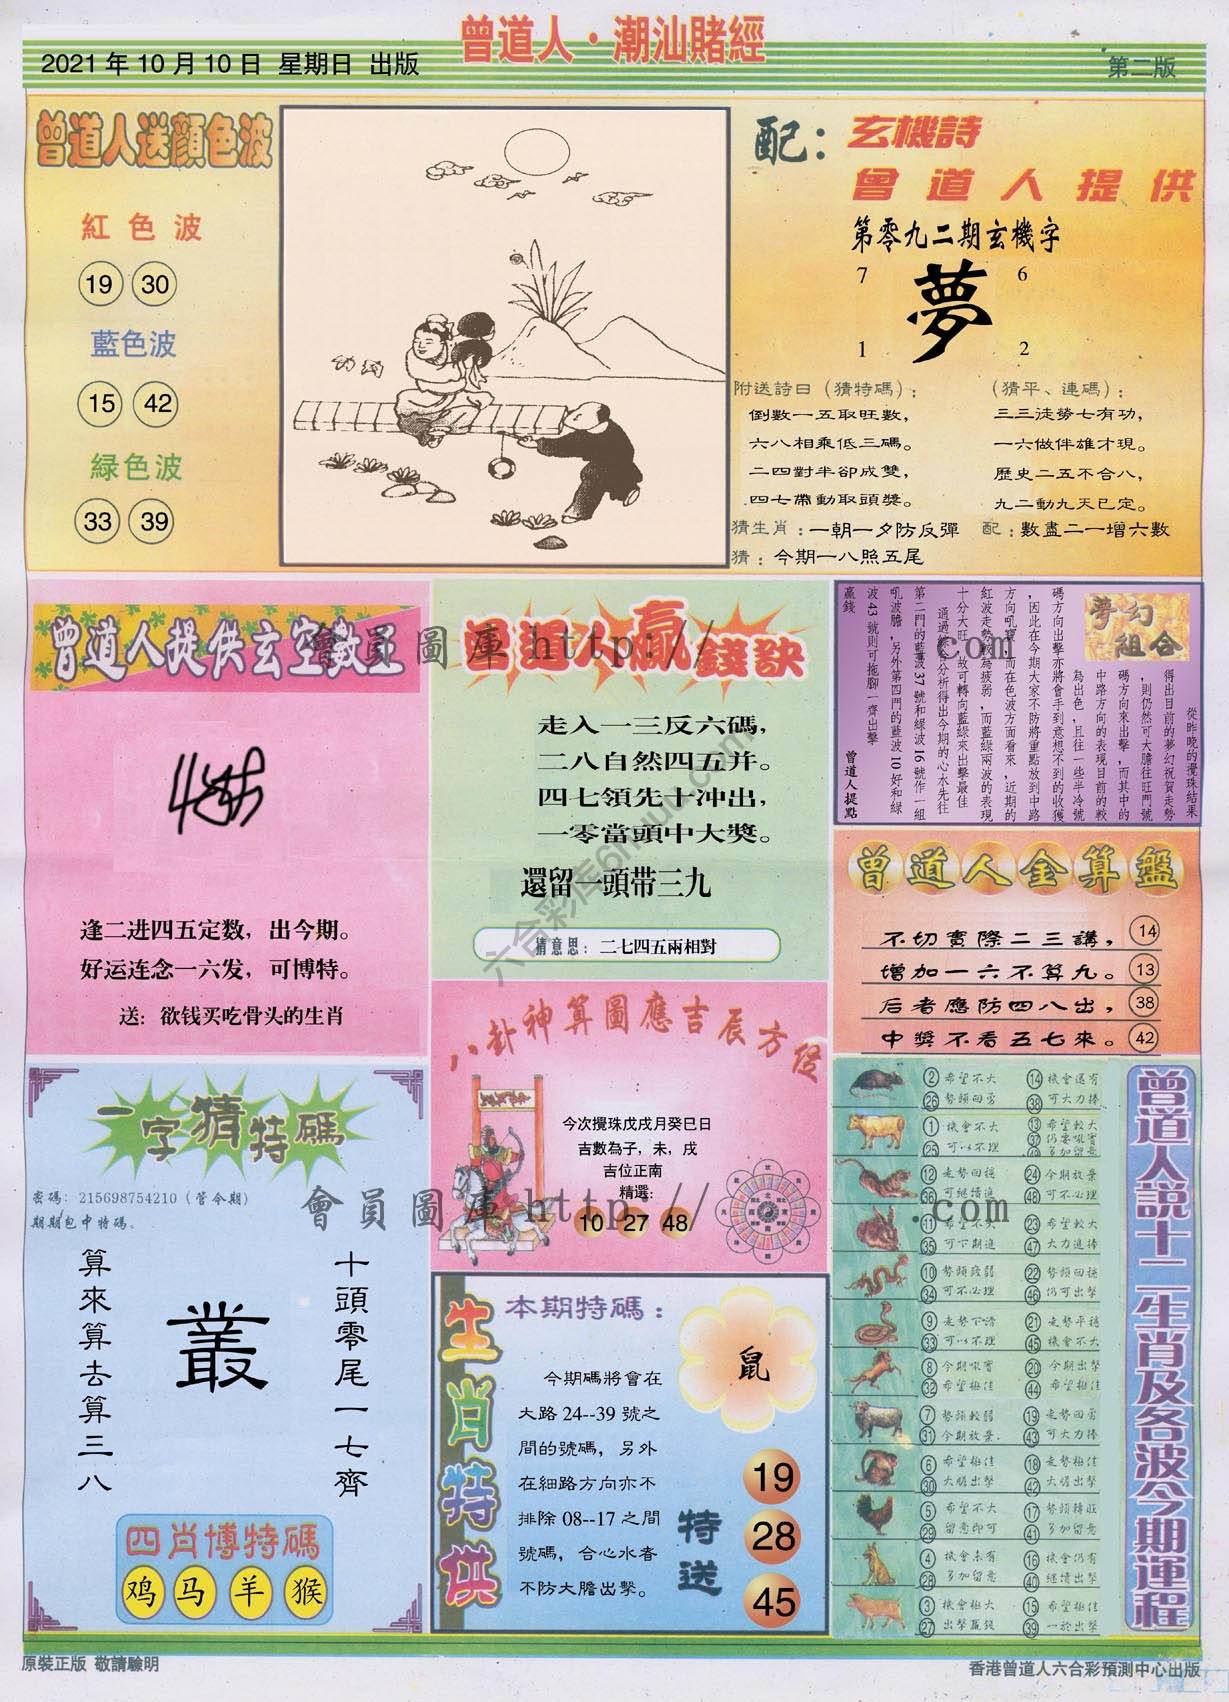 曾道人·潮汕賭經
2021 年 10 月 10 日 星期日 出版
第二版
曾道人送顏色波
紅色波
19 30
藍色波
15 42
緑色波
33 39
配：玄機詩
曾道人提供
第零九二期玄機字
7 6
夢
1 2
附送詩曰（猜特碼）：
倒數一五取旺數，
六八相乘低三碼。
二四對半卻成雙，
四七帶動取頭獎。
（猜平、連碼）：
三三徒勞七有功，
一六做伴雄才現。
歷史二五不合八，
九二動九天已定。
猜生肖：一朝一夕防反彈 配：數盡二一增六數
猜：今期一八照五尾
曾道人提供玄空數王
逢二进四五定数，出今期。
好运连念一六发，可博特。
送：欲钱买吃骨头的生肖
曾道人贏錢訣
走入一三反六碼，
二八自然四五并。
四七領先十冲出，
一零當頭中大獎。
還留一頭带三九
猜意思：二七四五兩相對
夢幻組合
從昨晚的攪珠結果
得出目前的夢幻祝賀走勢
，則仍然可大膽往旺門號
碼方向來出擊，而其中的
中路方向的表現目前的較
為出色，且往一些半冷號
碼方向出擊亦將會手到意想不到的收獲
，因此在今期大家不防將重點放到中路
方向吼寶，而在色波方面看來，近期的
紅波走勢較為疲弱，而藍綠兩波的表現
十分大旺，故可轉向藍綠來出擊最佳
通過綜合分析得出今期的心水先往
第二門的藍波 37 號和綠波 16 號作一組
吼波膽，另外第四門的藍波 10 好和綠
波 43 號則可拖腳一齊出擊
贏錢
曾道人提點
曾道人金算盤
不切實際二三講， 14
增加一六不算九。 13
后者應防四八出， 38
中獎不看五七來。 42
八卦神算圖應吉辰方位
今次攪珠戊戌月癸巳日
吉數為子，未，戌
吉位正南
精選：
10 27 48
一字猜特碼
密碼：215698754210（管令期）
期期包中特碼。
十頭零尾一七齊
叢
算來算去算三八
四肖博特碼
鸡 马 羊 猴
生肖特供
本期特碼：
鼠
今期碼將會在
大路 24--39 號之
間的號碼，另外
在細路方向亦不
排除 08--17 之間
號碼，合心水者
不防大膽出擊。
特送
19
28
45
曾道人説十二生肖及各波今期運程
② 希望不大 ⑭ 機會還有
㉖ 勢頭回勇 ㊳ 可大力捧
① 機會不大 ⑬ 希望較大
㉕ 可以不理 ㊲ 仍要吼實
㊾ 多加留意
⑫ 走勢回穩 ㉔ 今期放棄
㊱ 可繼續進 ㊽ 可不必理
⑪ 希望不大 ㉓ 希望較大
㉟ 可下期進 ㊼ 大力進捧
⑩ 勢頭段弱 ㉒ 勢頭回穩
㉞ 可不必理 ㊻ 仍可出擊
⑨ 走勢下滑 ㉑ 走勢平穩
㉝ 可以不理 ㊺ 機會不大
⑧ 今期吼實 ⑳ 今期出擊
㉜ 希望極佳 ㊹ 希望極佳
⑦ 勢頭較弱 ⑲ 走勢回勇
㉛ 今期放棄 ㊸ 可大力捧
⑥ 希望極佳 ⑱ 走勢極佳
㉚ 大膽出擊 ㊷ 大膽出擊
⑤ 希望不大 ⑰ 勢頭轉旺
㉙ 留意即可 ㊶ 多加留意
④ 機會未有 ⑯ 機會仍有
㉘ 多加留意 ㊵ 繼續出擊
③ 機會極大 ⑮ 希望極佳
㉗ 出擊贏錢 ㊴ 一於出擊
會員圖庫 http:// .com
會員圖庫 http:// .com
原裝正版 敬請驗明
香港曾道人六合彩預測中心出版